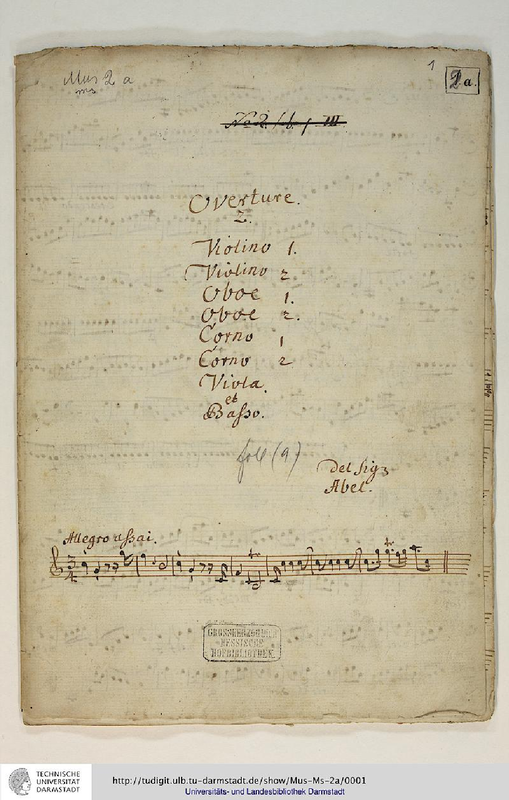 Mus 2 a
ms
1
2a.
Overture.
2.
Violino 1.
Violino 2
Oboe 1.
Oboe 2.
Corno 1
Corno 2
Viola.
et
Baſso.
fol (9)
Del Sig
Abel.
Allegro aſsai.
GROSSHERZOGLICH
HESSISCHE
HOFBIBLIOTHEK.
TECHNISCHE
UNIVERSITÄT
DARMSTADT
http://tudigit.ulb.tu-darmstadt.de/show/Mus-Ms-2a/0001
Universitäts- und Landesbibliothek Darmstadt